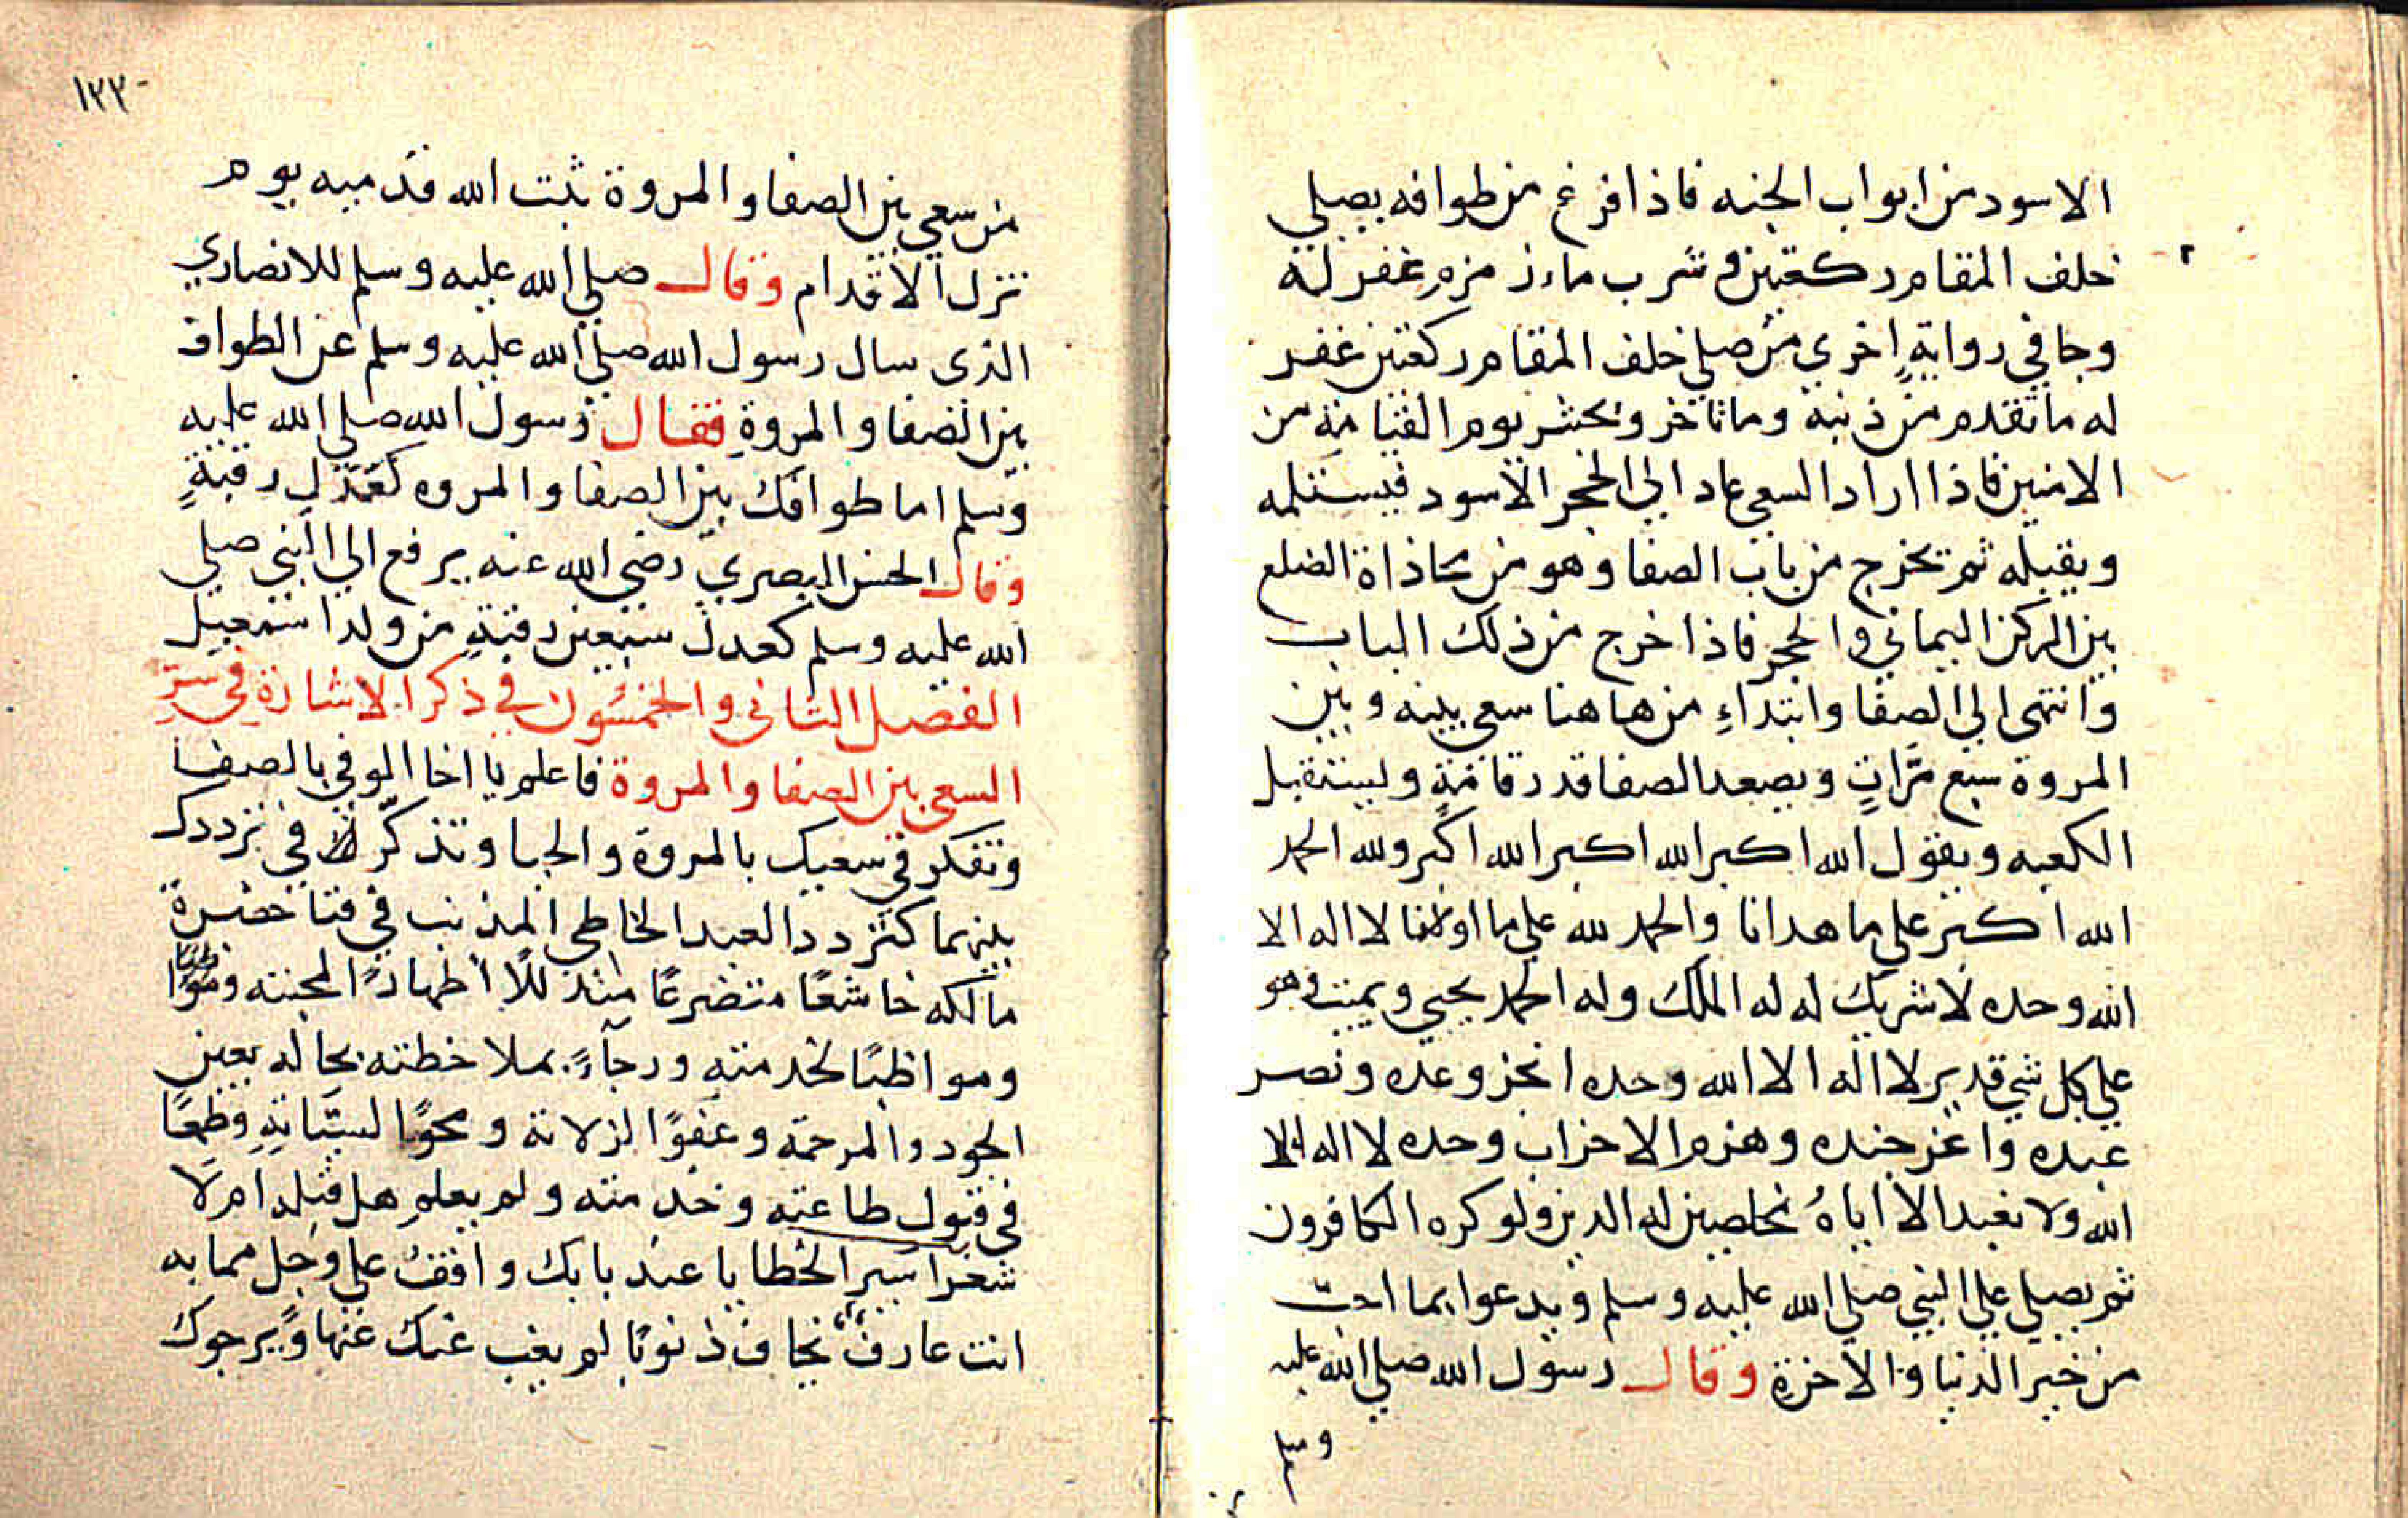 الاسود من ابواب الجنه فاذا فرغ من طوافه يصلي
خلف المقام ركعتين و شرب ماء زمزم غفر له
وجا في رواية اخري من صلي خلف المقام ركعتين غفر
له ما تقدم من ذنبه وما تاخر ويحشر يوم القيامة من
الامنين فاذا اراد السعي عاد الي الحجر الاسود فيستلمه
ويقبله ثم تخرج من باب الصفا وهو من محاذاة الضلع
بين الركن اليماني والحجر فاذا خرج من ذلك الباب
وانتهى الي الصفا وابتداء من هاهنا سعي بينه وبين
المروة سبع مرات ويصعد الصفا قدر قامة ويستقبل
الكعبه ويقول الله اكبر الله اكبر الله اكبر ولله الحمد
الله اكبر علي ما هدانا والحمد لله علي ما اولانا لا اله الا
الله وحده لا شريك له له الملك وله الحمد يحيي ويميت وهو
علي كل شي قدير لا اله الا الله وحده انجز وعده ونصر
عبده واعز جنده وهزم الاحزاب وحده لا اله الا
الله ولا نعبد الا اياه مخلصين له الدين ولو كره الكافرون
ثم يصلي علي النبي صلي الله عليه وسلم ويدعوا بما احب
من خير الدنيا والاخرة وقال رسول الله صلي الله عليه
وسلم
١٢٢
من سعي بين الصفا والمروة ثبت الله قدميه يوم
تزل الاقدام وقال صلي الله عليه وسلم للانصاري
الذى سال رسول الله صلي الله عليه وسلم عن الطواف
بين الصفا والمروة فقال رسول الله صلي الله عليه
وسلم اما طوافك بين الصفا والمروه كعدل رقبة
وقال الحسن البصري رضي الله عنه يرفع الي النبي صلي
الله عليه وسلم كعدل سبعين رقبة من ولد اسمعيل
الفصل الثاني والخمسون في ذكر الاشارة في سر
السعي بين الصفا والمروة فاعلم يا اخا الوفي بالصفا
وتفكر في سعيك بالمروة والحيا وتذكر في ترددك
بينهما كتردد العبد الخاطي المذنب في فنا حضرة
مالكه خاشعا متضرعا متذللا اظهارا لمحبته
ومواظبا لخدمته ورجاء بملاحظته بحاله بعين
الجود والمرحمة وعفوا لزلاته ومحوا لسياته وطمعا
في قبول طاعته وخدمته ولم يعلم هل قبله ام لا
شعر اسير الخطايا عند بابك واقف علي وجل مما به
انت عارف يخاف ذنوبا لم يغب عنك غيبها ويرجوك